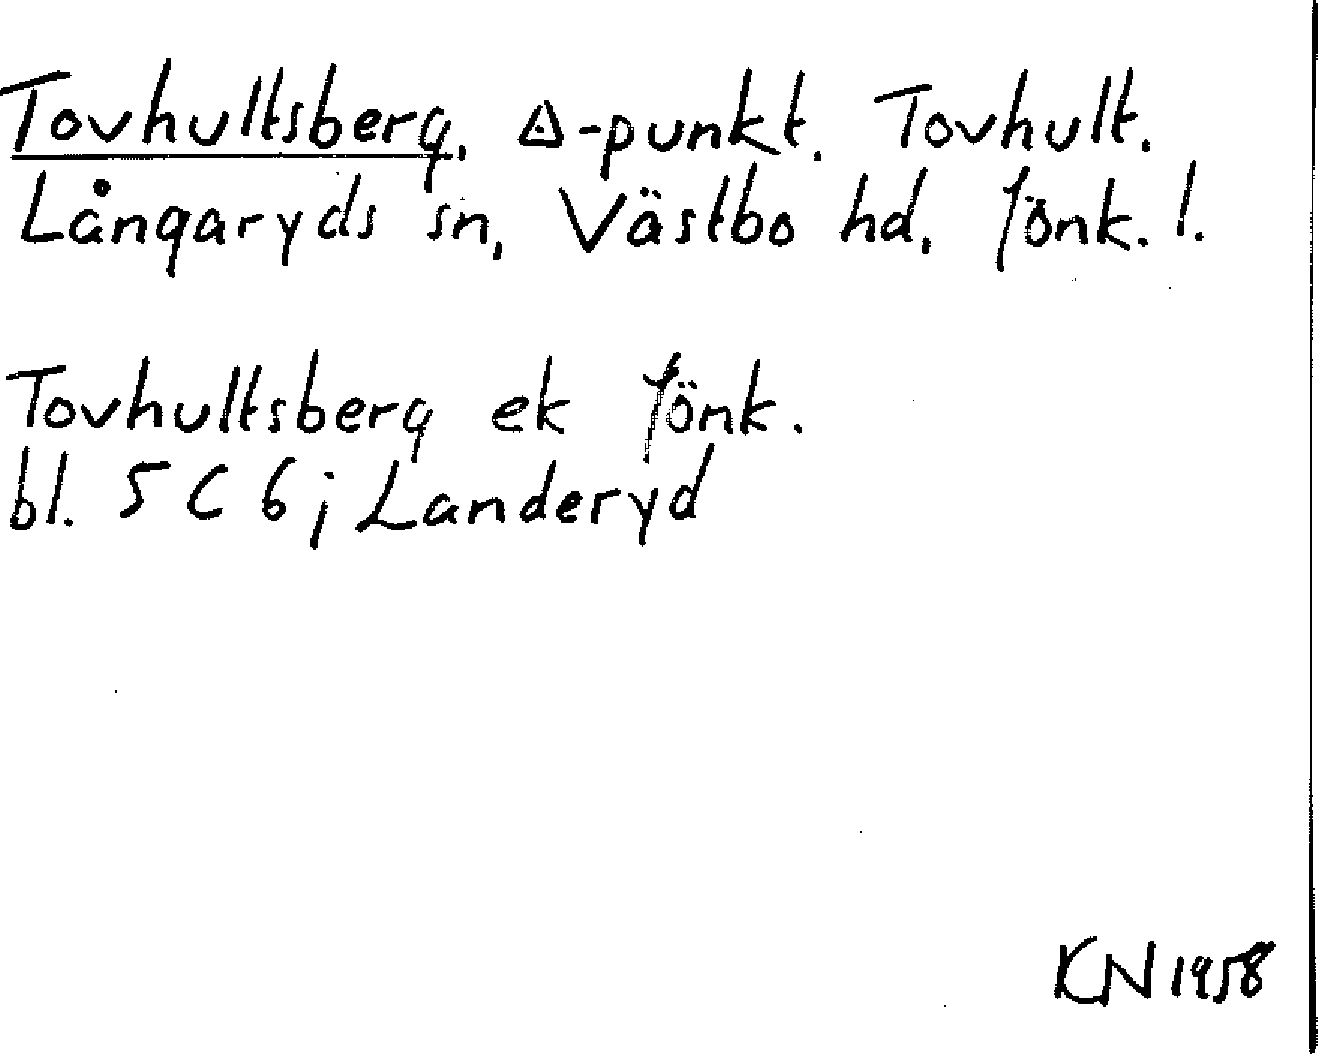 Tovhultsberg, △-punkt. Tovhult.
Långaryds sn, Västbo hd, Jönk. l.
Tovhultsberg ek Jönk.
bl. 5 C 6; Landeryd
KN 1958